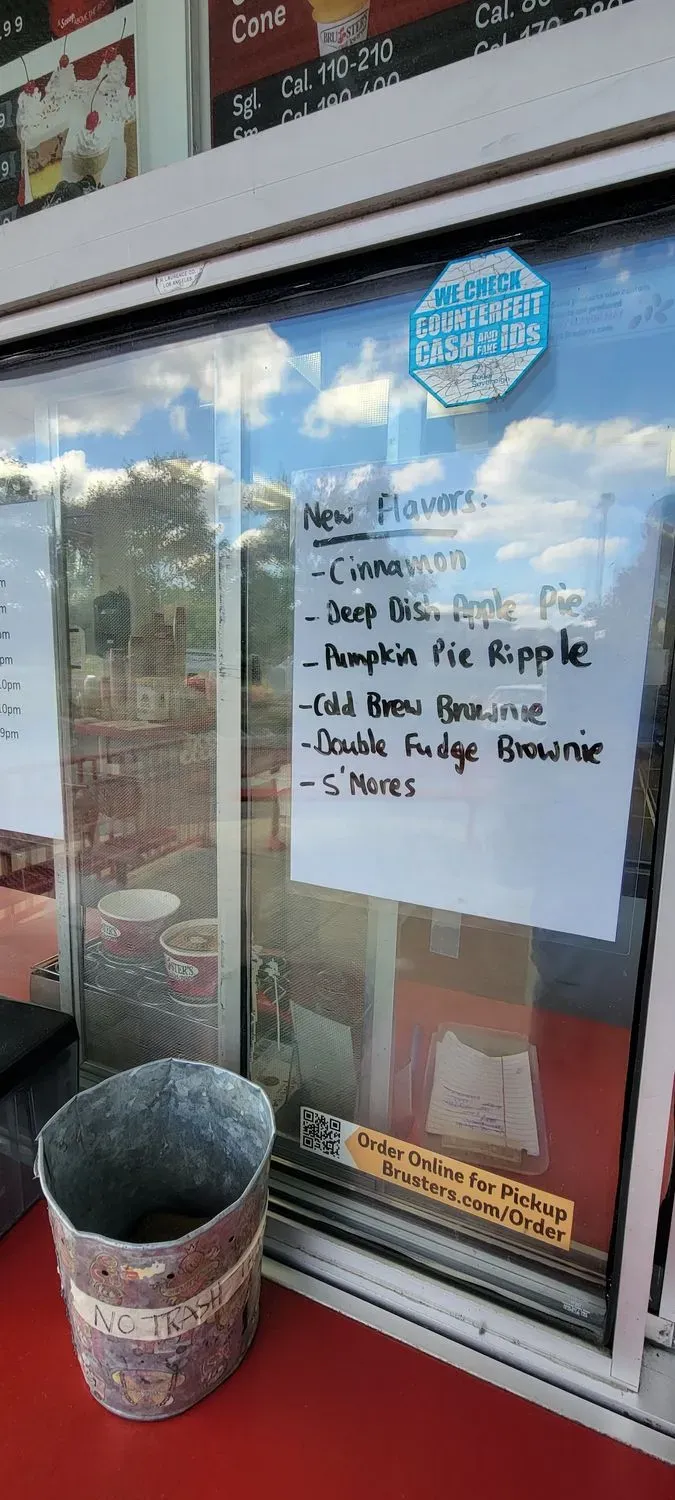 Cone
BRUSTER'S
Cal. 170-280
Sgl. Cal. 110-210
Sm. Cal. 190-400
LOS ANGELES
WE CHECK
COUNTERFEIT
CASH AND FAKE IDS
New Flavors:
- Cinnamon
- Deep Dish Apple Pie
- Pumpkin Pie Ripple
- Cold Brew Brownie
- Double Fudge Brownie
- S'Mores
pm
10pm
10pm
9pm
Order Online for Pickup
Brusters.com/Order
NO TRASH